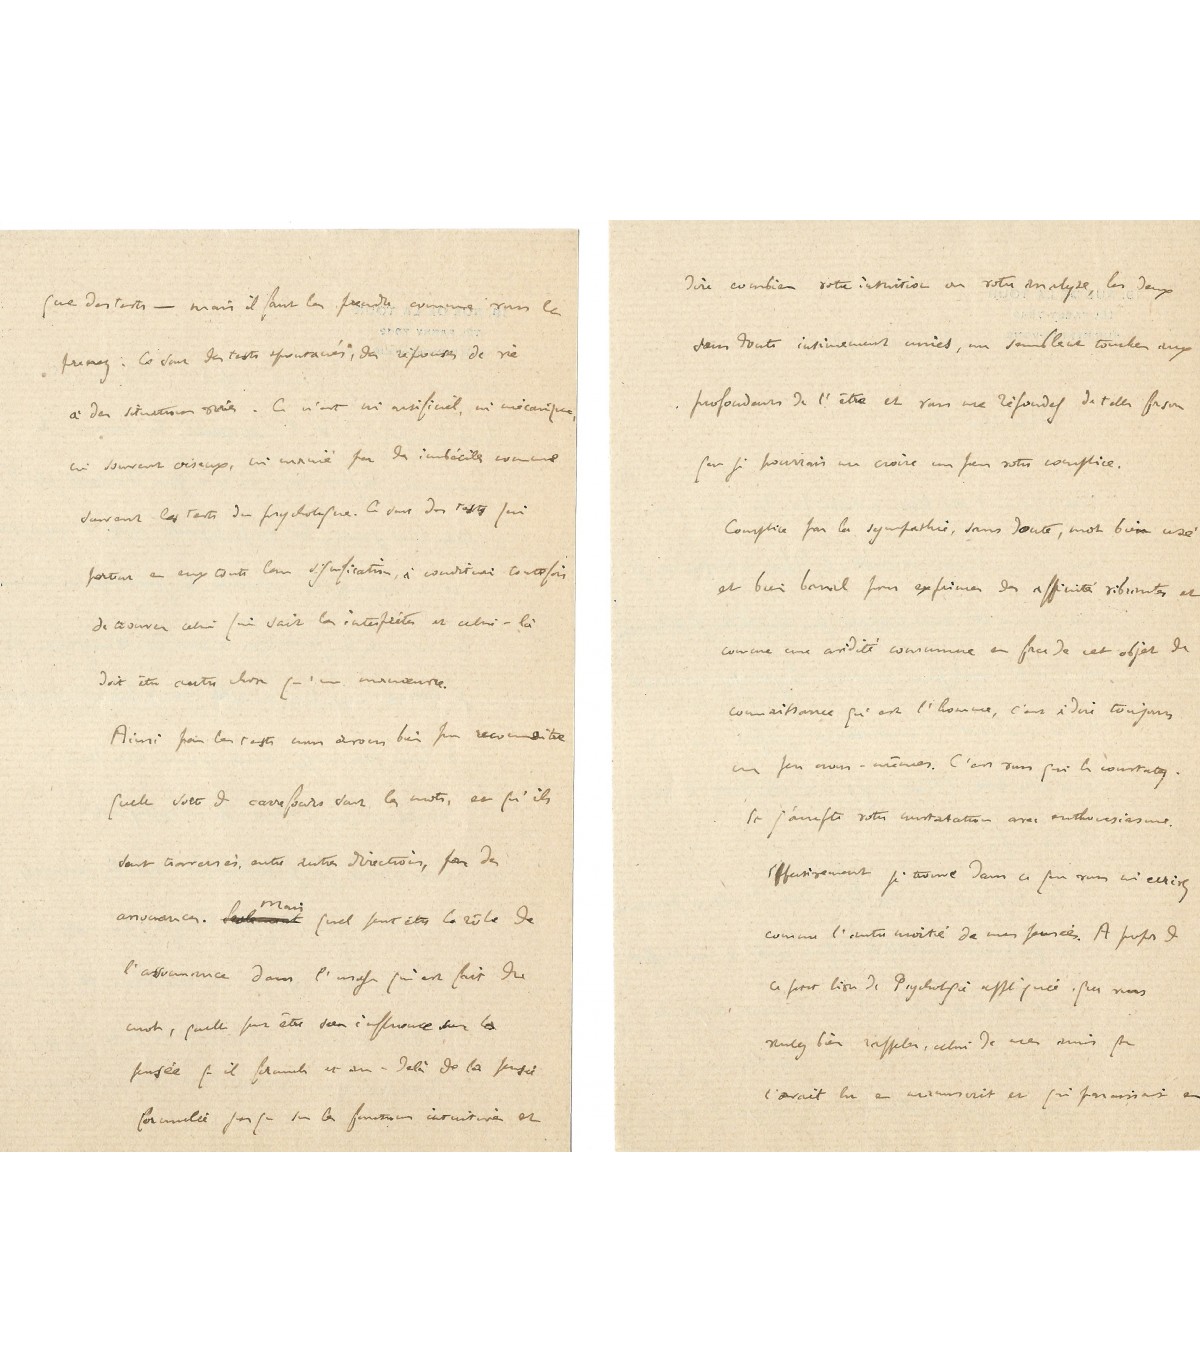 que des tests — mais il faut les prendre comme vous les
prenez. Ce sont des tests spontanés, des réponses de vie
à des situations vraies. Ce n'est ni artificiel, ni mécanique,
ni souvent oiseux, ni manié par des imbéciles comme
souvent les tests du psychologue. Ce sont des tests qui
portent en eux toute leur signification, à condition toutefois
de trouver celui qui sait les interpréter et celui-là
doit être autre chose qu'un manoeuvre.
Ainsi par les tests nous devons bien reconnaître
quelle sorte de carrefours sont les mots, et qu'ils
sont traversés, entre autres directions, par des
assonances. Mais quel peut être le rôle de
l'assonance dans l'usage qui est fait du
mot, quelle peut être son influence sur la
pensée qu'il formule et au-delà de la pensée
formulée jusque sur les fonctions intuitives et
dire combien votre intuition ou votre analyse, les deux
sans doute intimement unies, me semblent toucher aux
profondeurs de l'être et vous me répondez de telle façon
que je pourrais me croire un peu votre complice.
Complice par la sympathie, sans doute, mot bien usé
et bien banal pour exprimer des affinités vibrantes et
comme une avidité commune en face de cet objet de
connaissance qu'est l'homme, c'est à dire toujours
un peu nous-mêmes. C'est vous qui le constatez.
Et j'accepte votre constatation avec enthousiasme.
Effectivement je trouve dans ce que vous m'écrivez
comme l'autre moitié de mes pensées. A propos de
ce petit livre de Psychologie appliquée que vous
voulez bien rappeler, celui de mes amis qui
l'avait lu en manuscrit et qui paraissait en